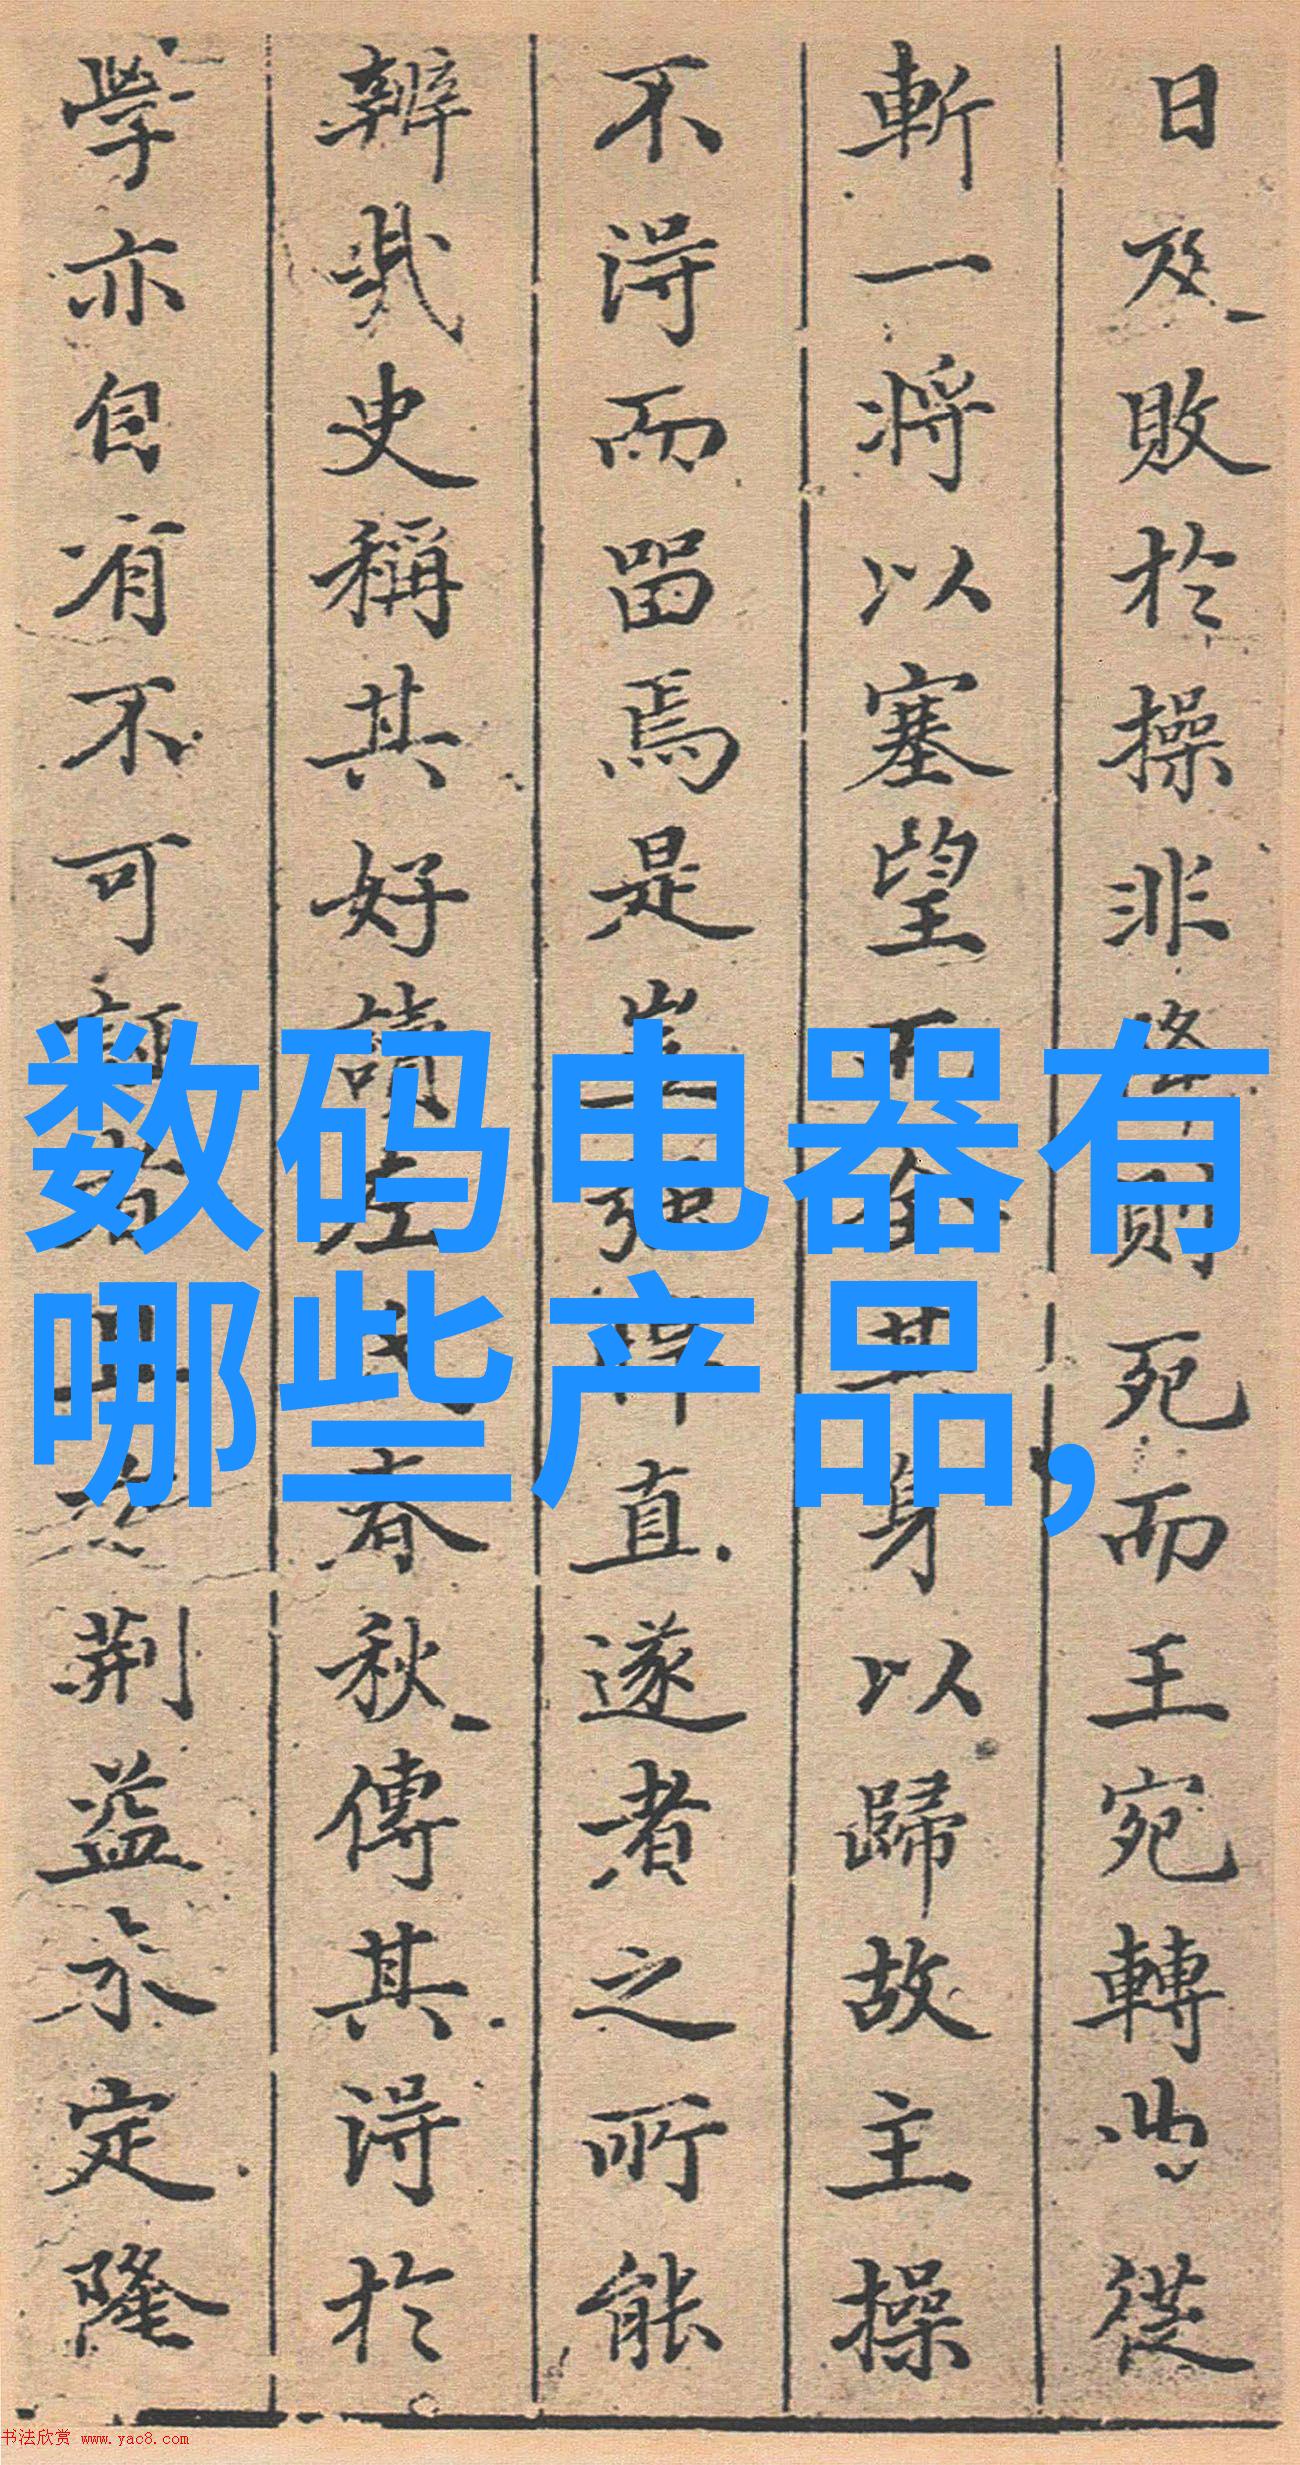 日及敗於操非降則死而王宛轉曲從
斬一将以塞望而全其身以歸故主操
不得而留焉是豈强悍直遂者之所能
辨哉史稱其好讀左氏春秋傳其得於
學亦自有不可誣者荆益未定隆
数码电器有
哪些产品,
书法欣赏 www.yac8.com